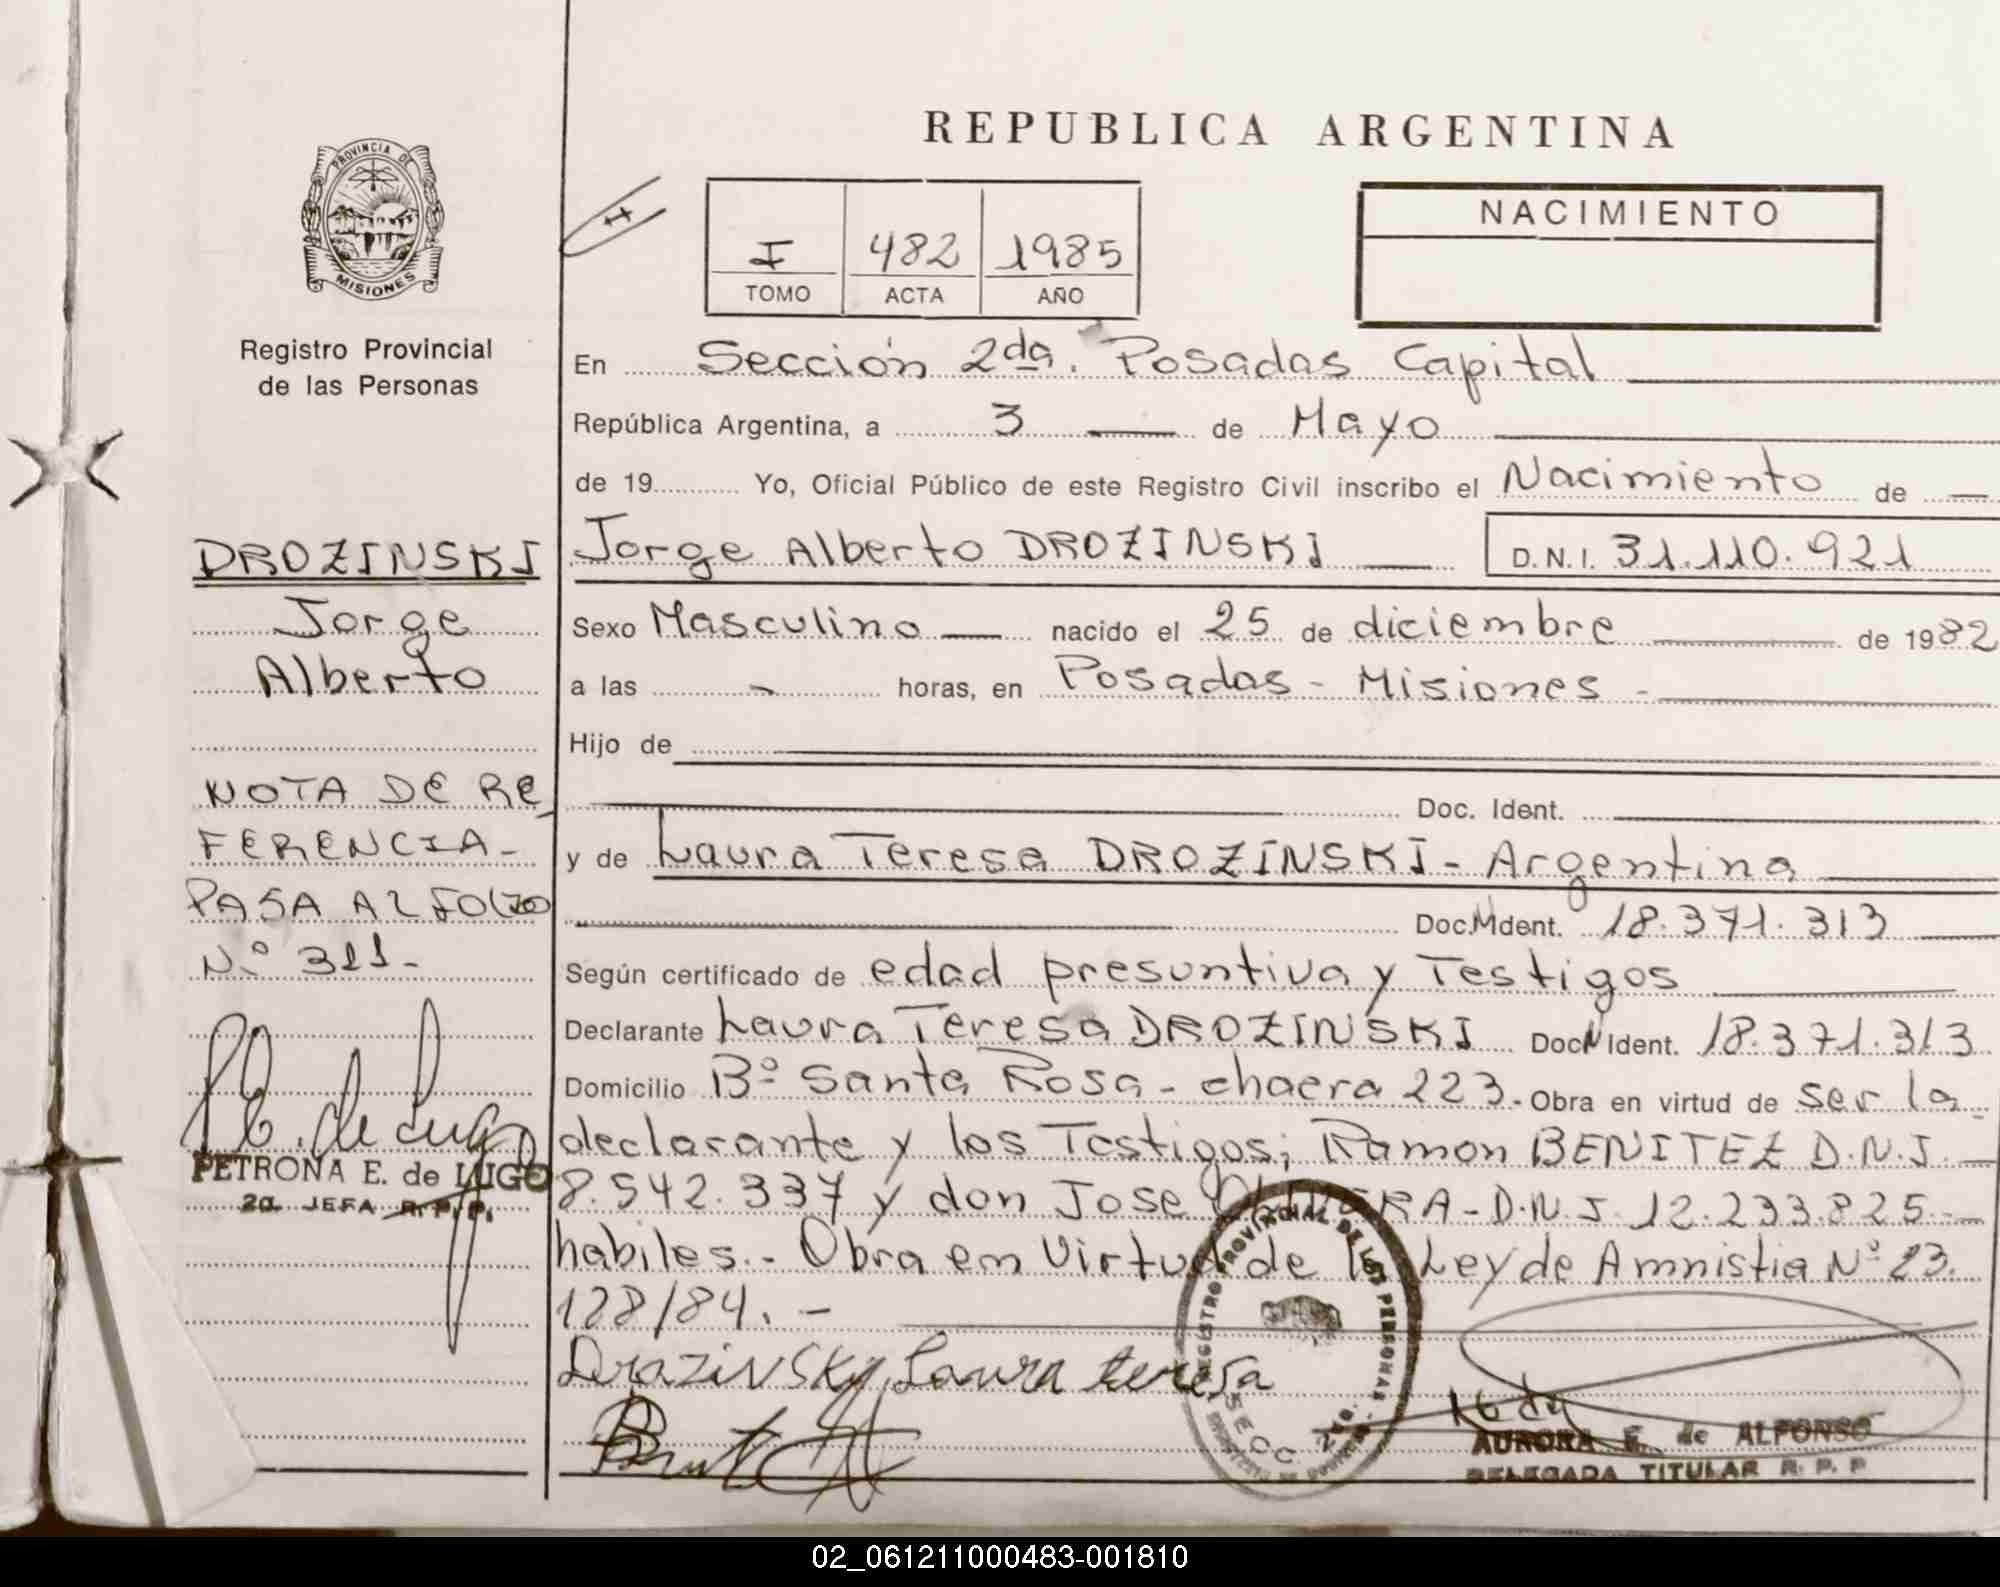 REPUBLICA ARGENTINA
PROVINCIA DE
MISIONES
Registro Provincial
de las Personas
I 482 1985
TOMO ACTA AÑO
NACIMIENTO
En Sección 2da. Posadas Capital
República Argentina, a 3 de Mayo
de 19 Yo, Oficial Público de este Registro Civil inscribo el Nacimiento de
Jorge Alberto DROZINSKI D.N.I. 31.110.921
Sexo Masculino nacido el 25 de diciembre de 1982
a las - horas, en Posadas - Misiones -
Hijo de
Doc. Ident.
y de Laura Teresa DROZINSKI - Argentina
Doc. Ident. 18.371.313
Según certificado de edad presuntiva y Testigos
Declarante Laura Teresa DROZINSKI Doc Ident. 18.371.313
Domicilio Bº Santa Rosa - chacra 223. Obra en virtud de ser la
declarante y los Testigos; Ramon BENITEZ D.N.I.
8.542.337 y don Jose RA - D.N.I. 12.233.825.
habiles.- Obra em Virtud de la Ley de Amnistia Nº 23.
128/84. -
DrazinSky Laura teresa
REGISTRO PROVINCIAL DE LAS PERSONAS
SECC.
AURORA E. de ALFONSO
DELEGADA TITULAR R. P. P
DROZINSKI
Jorge
Alberto
NOTA DE RE
FERENCIA-
PASA AL FOLIO
N.º 311-
PETRONA E. de LUGO
2a. JEFA R.P.P.
02_061211000483-001810